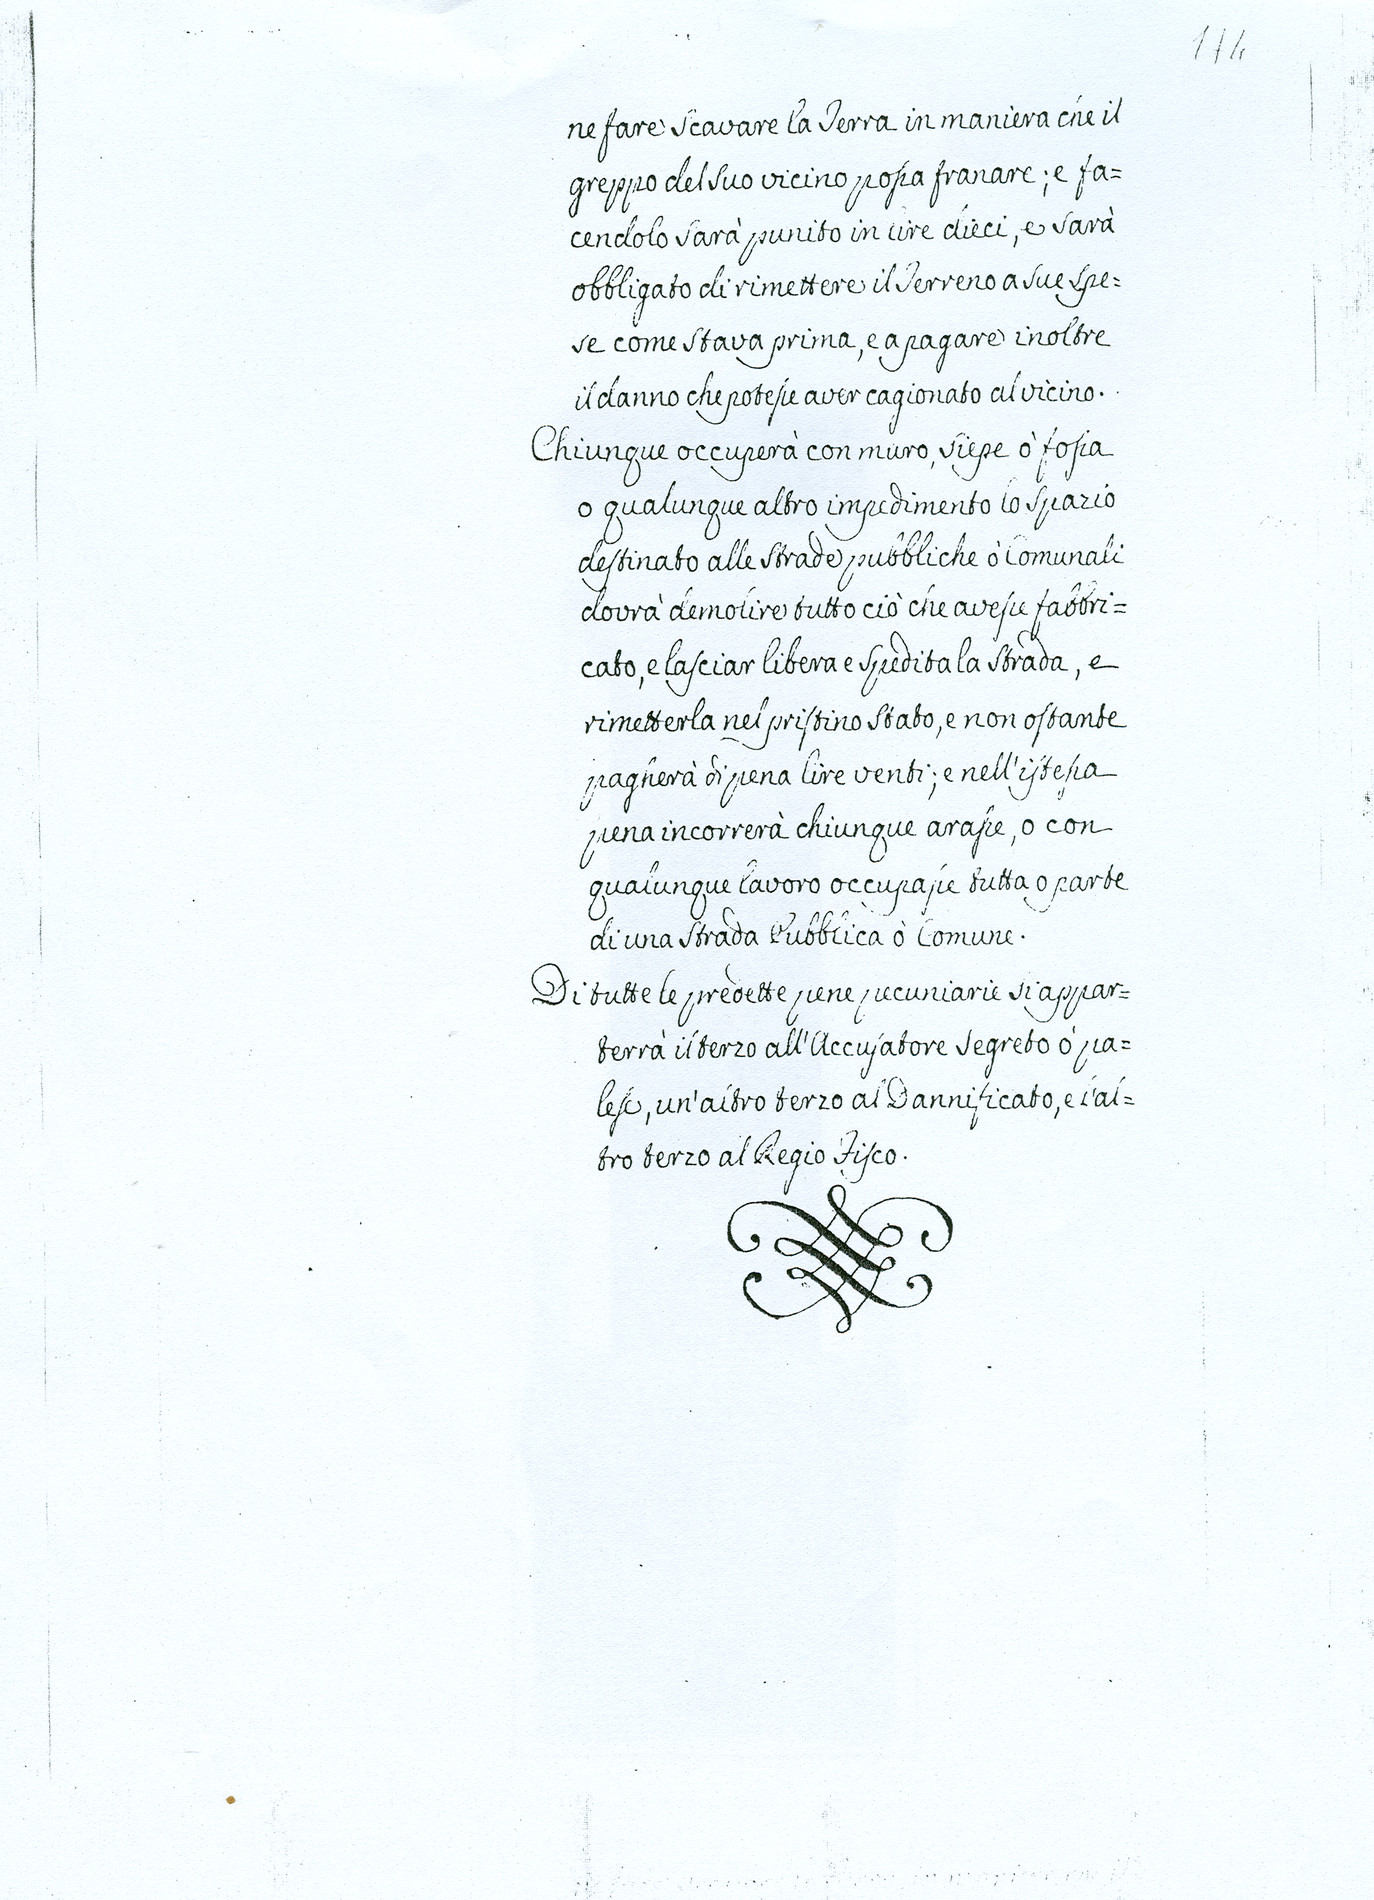 174
ne fare scavare la Terra in maniera che il
greppo del suo vicino possa franare; e fa=
cendolo sarà punito in lire dieci, e sarà
obbligato di rimettere il Terreno a sue spe=
se come stava prima, e a pagare inoltre
il danno che potesse aver cagionato al vicino.
Chiunque occuperà con muro, siepe ò fossa
o qualunque altro impedimento lo spazio
destinato alle strade pubbliche ò Comunali
dovrà demolire tutto ciò che avesse fabbri=
cato, e lasciar libera e spedita la strada, e
rimetterla nel pristino stato, e non ostante
pagherà di pena lire venti; e nell'istessa
pena incorrerà chiunque arasse, o con
qualunque lavoro occupasse tutta o parte
di una strada Pubblica ò Comune.
Di tutte le predette pene pecuniarie si appar=
terrà il terzo all'Accusatore segreto ò pa=
lese, un'altro terzo al Dannificato, e l'al=
tro terzo al Regio Fisco.